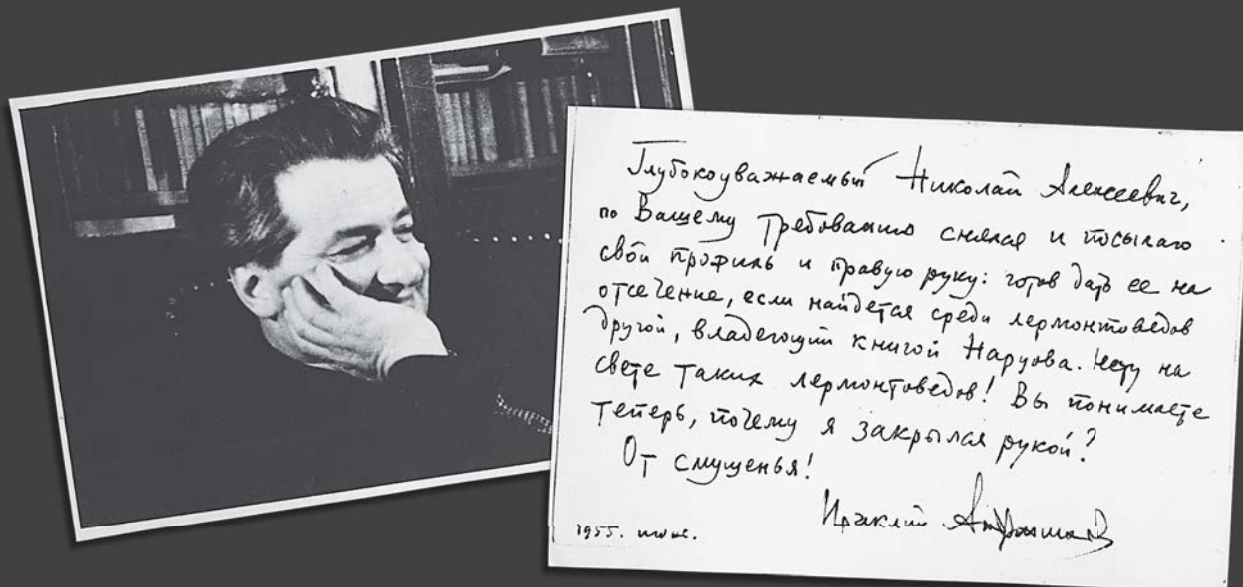 Глубокоуважаемый Николай Алексеевич,
по Вашему требованию снялся и посылаю
свой профиль и правую руку: готов дать ее на
отсечение, если найдется среди лермонтоведов
другой, владеющий книгой Нарузова. Нету на
свете таких лермонтоведов! Вы понимаете
теперь, почему я закрылся рукой?
От смущенья!
Ираклий Андроников
1955. июнь.